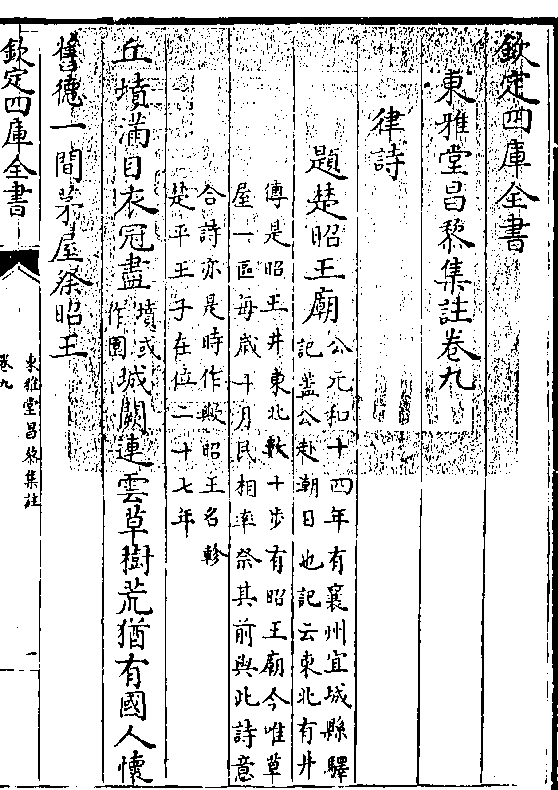 欽定四庫全書
東雅堂昌黎集註卷九
律詩
題楚昭王廟公元和十四年有襄州宜城縣驛
記葢公赴潮日也記云東北有井
傳是昭王井東北數十步有昭王廟今唯草
屋一區每歲十月民相率祭其前與此詩意
合詩亦是時作歟昭王名軫
楚平王子在位二十七年
丘墳滿目衣冠盡墳或作園城闕連雲草樹荒猶有國人懷
舊德一間茅屋祭昭王
欽定四庫全書
東雅堂昌黎集註
卷九
一